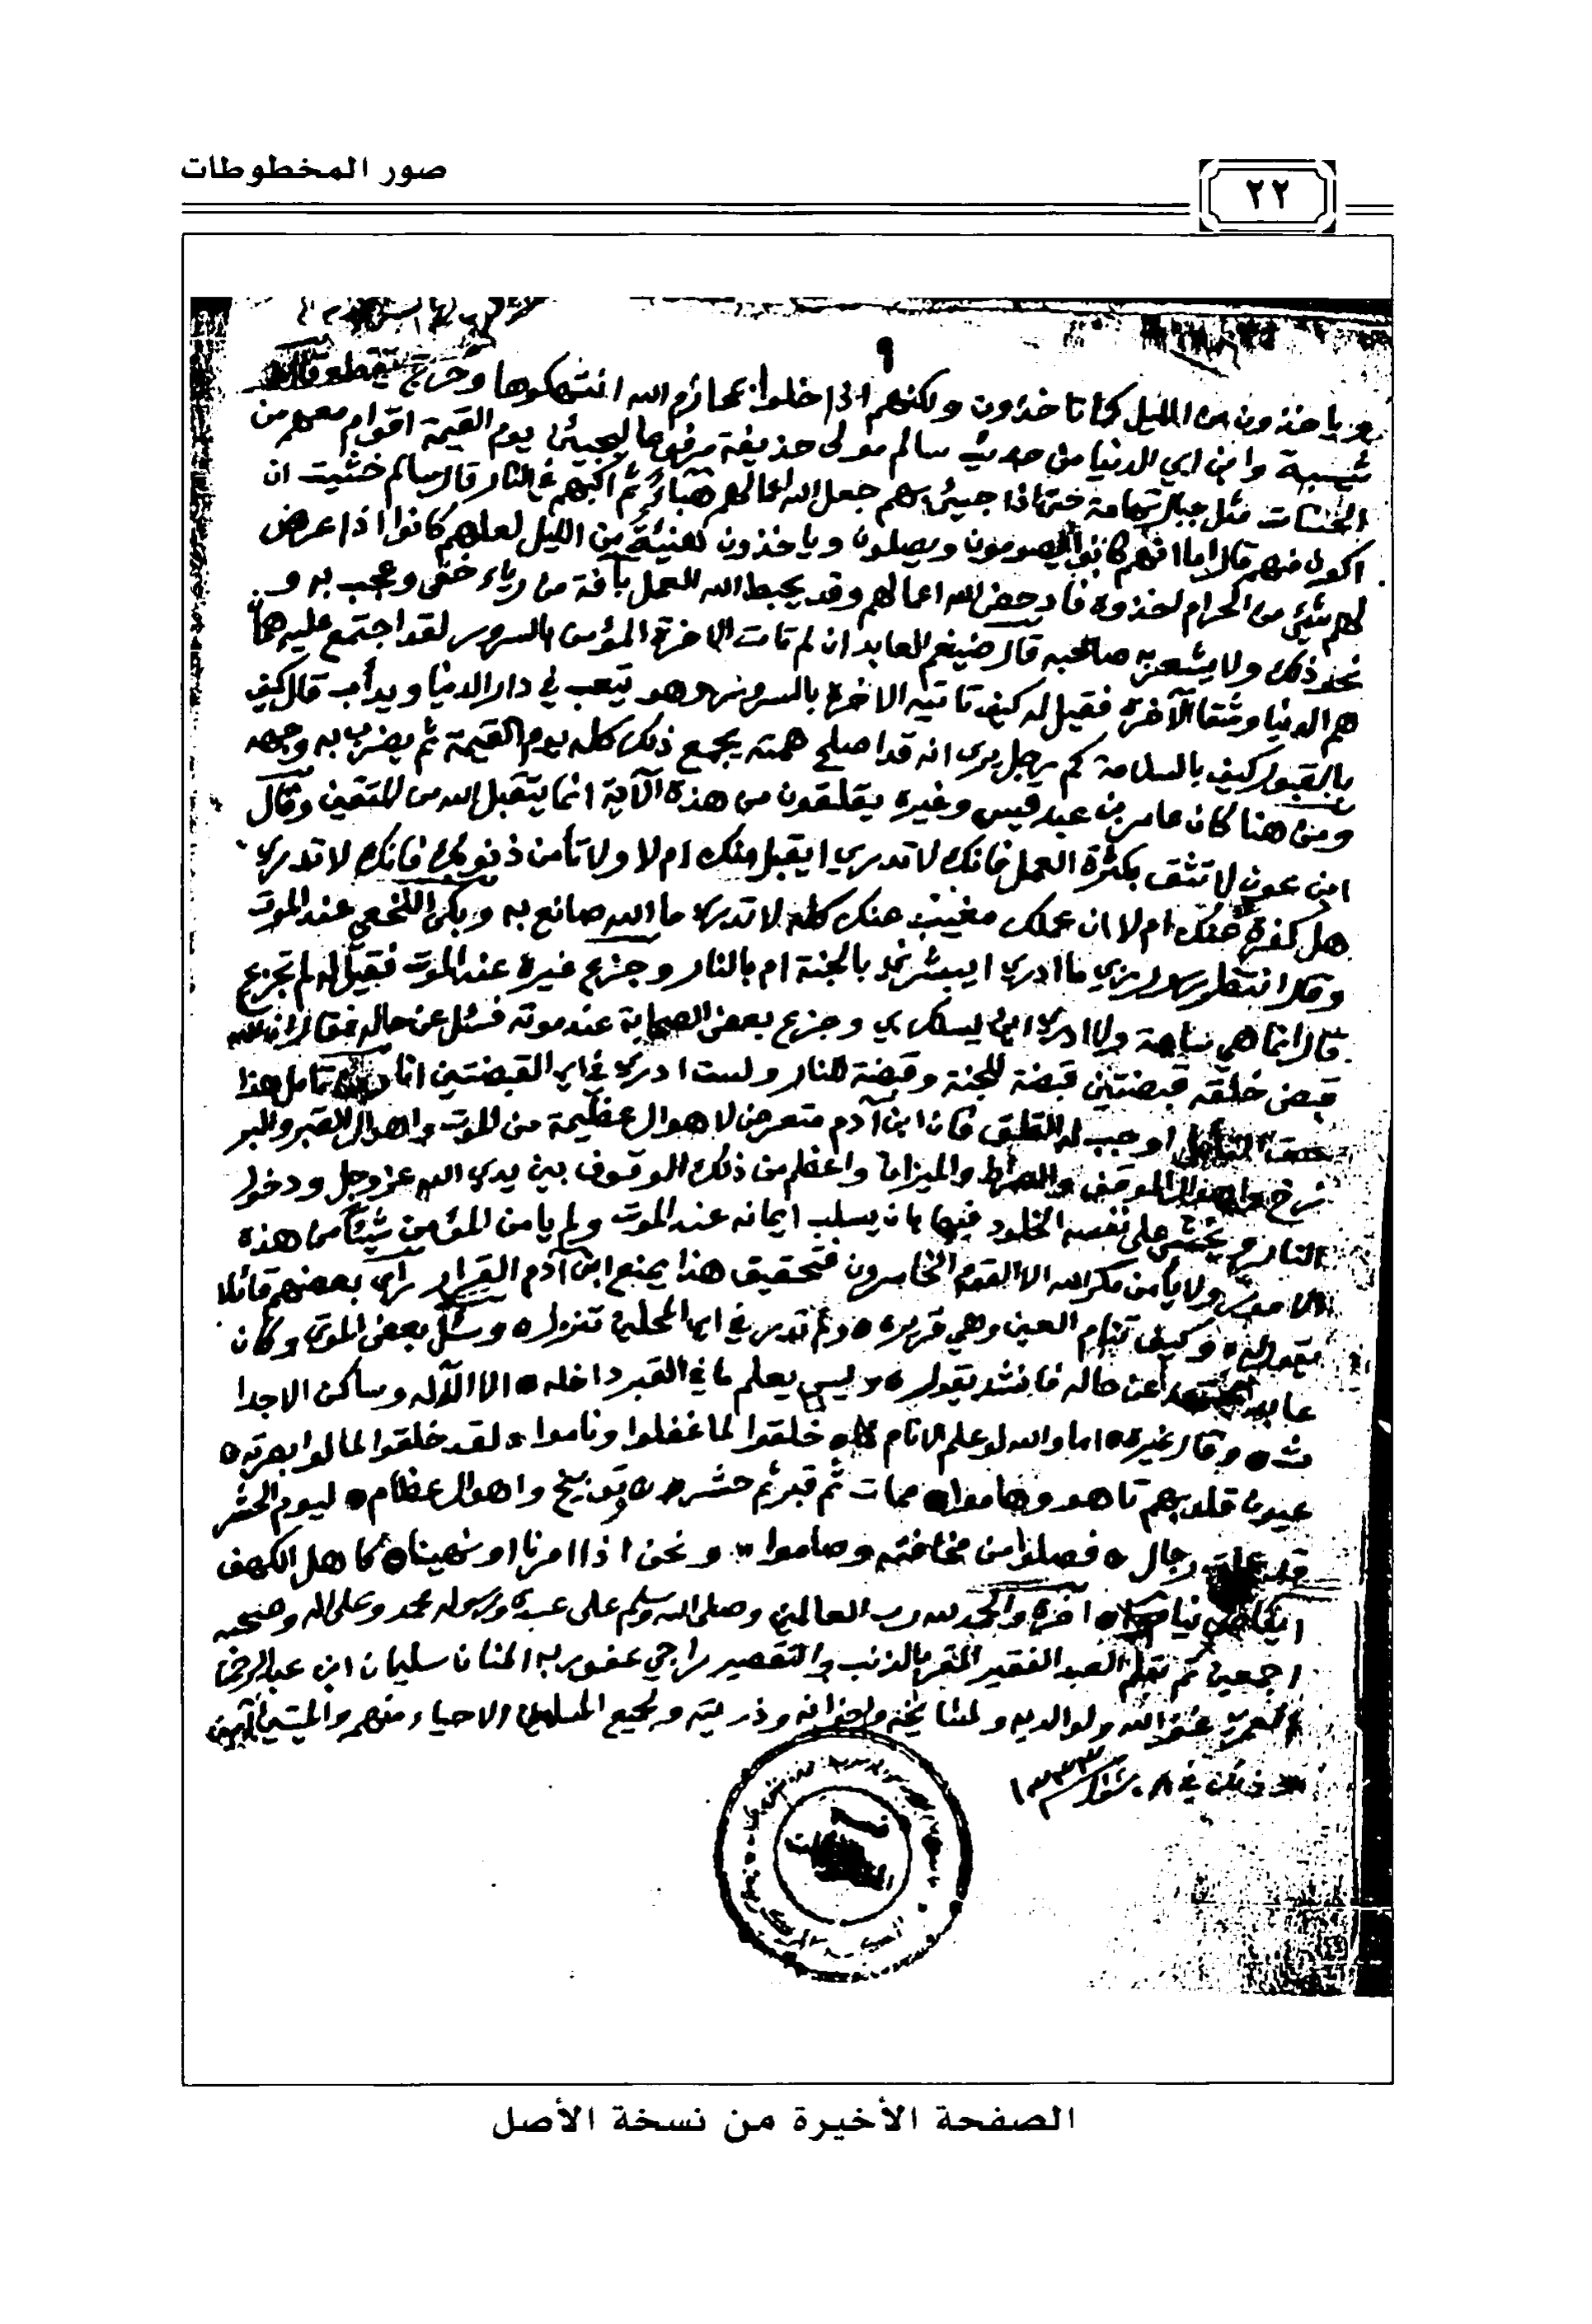 صور المخطوطات
٢٢
٩
وياخذون من الليل كما تاخذون ولكنهم اذا خلوا بمحارم الله انتهكوها وخرج
شيبة وابن ابي الدنيا من حديث سالم مولى حذيفة مرفوعا ليجيئن يوم القيمة اقوام معهم من
الحسنات مثل جبال تهامة حتى اذا جيئ بهم جعل الله اعمالهم هبآء ثم اكبهم في النار قال سالم خشيت ان
اكون منهم قال اما انهم كانوا يصومون ويصلون وياخذون هنيئة من الليل لعلهم كانوا اذا عرض
لهم شيئ من الحرام اخذوه فادحض الله اعمالهم وقد يحبط الله العمل بآفة من رياء خفي وعجب به و
نحو ذلك ولا يشعر به صاحبه قال ضيغم العابد ان لم تات الاخرة المؤمن بالسرور لقد اجتمع عليه همآ
هم الدنيا وشقا الآخرة فقيل له كيف تاتيه الاخرة بالسرور وهو تيعب في دار الدنيا ويدأب قال كيف
بالقبول كيف بالسلامة كم رجل يرى انه قد اصلح همته يجمع ذلك كله يوم القيمة ثم يضرب به وجهه
ومن هنا كان عامر بن عبد قيس وغيره يقلقون من هذه الآية انما يتقبل الله من المتقين وقال
ابن عون لا تثق بكثرة العمل فانك لا تدري ايقبل منك ام لا ولا تأمن ذنوبك فانك لا تدري
هل كفرت عنك ام لا ان عملك مغيب عنك كله لا تدري ما الله صانع به وبكى النخعي عند الموت
وقال انتظر رسول ربي ما ادري ايبشرني بالجنة ام بالنار وجزع غيره عند الموت فقيل له لم تجزع
قال انما هي ساعة ولا ادري اين يسلك بي وجزع بعض الصحابة عند موته فسئل عن حاله فقال ان الله
قبض خلقه قبضتين قبضة للجنة وقبضة للنار ولست ادري في اي القبضتين انا تامل هذا
حق التأمل اوجب له القلق فان ابن آدم متعرض لاهوال عظيمة من الموت واهوال القبر والبر
زخ واهوال الموقف والصراط والميزان واعظم من ذلك الوقوف بين يدي الله عز وجل ودخول
النار ويخشى على نفسه الخلود فيها بان يسلب ايمانه عند الموت ولم يامن المؤمن شيئآ من هذه
الامور ولا يأمن مكر الله الا القوم الخاسرون فتحقيق هذا يمنع ابن آدم القرار رأى بعضهم قائلا
يقول له وكيف تنام العين وهي قريرة ه ولم تدر في اي المحلين تنزل ه وسئل بعض الموتى وكان
عابدا عن حاله فانشد يقول ه وليس يعلم ما في القبر داخله ه الا الآله وساكن الاجدا
ث ه وقال غيره ه اما والله لو علم الانام ه خلقوا لما غفلوا وناموا ه لقد خلقوا لما لو ابصرته ه
عيون قلوبهم تاهو وهاموا ه ممات ثم قبر ثم حشر ه توبيخ واهوال عظام ه ليوم الحشر
قد عملت رجال ه فصلوا من مخافته وصاموا ه ونحن اذا امرنا او نهينا ه كاهل الكهف
ايقاظ نيام ه اخره والحمد لله رب العالمين وصلى الله وسلم على عبده ورسوله محمد وعلى اله وصحبه
اجمعين تم بقلم العبد الفقير المقر بالذنب والتقصير راجي عفو ربه المنان سليمان ابن عبد الرحمن
العمري غفر الله له ولوالديه ولمشايخه واخوانه وذريته ولجميع المسلمين الاحياء منهم والميتين آمين
ذلك في ٨ شوال ١٣٣٣
الصفحة الأخيرة من نسخة الأصل